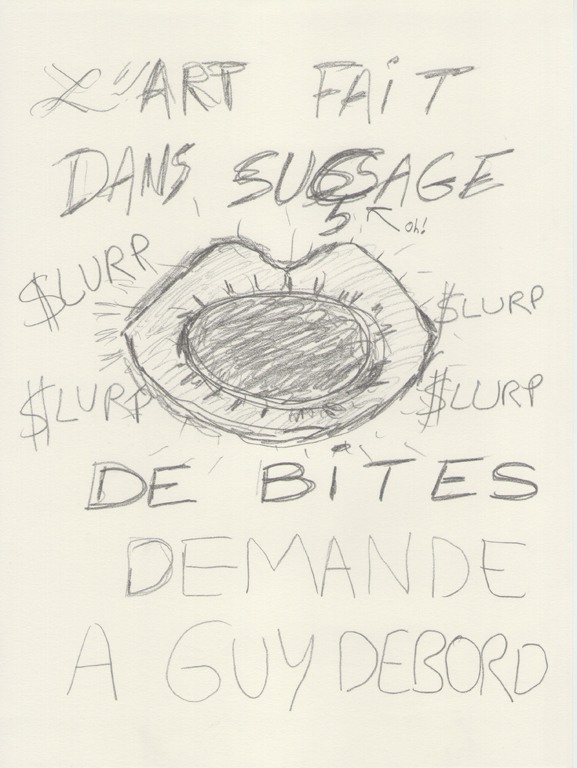 L'ART FAIT
DANS SUGSAGE
5 Oh!
$LURP
$LURP
$LURP
$LURP
DE BiTES
DEMANDE
A GUY DEBORD